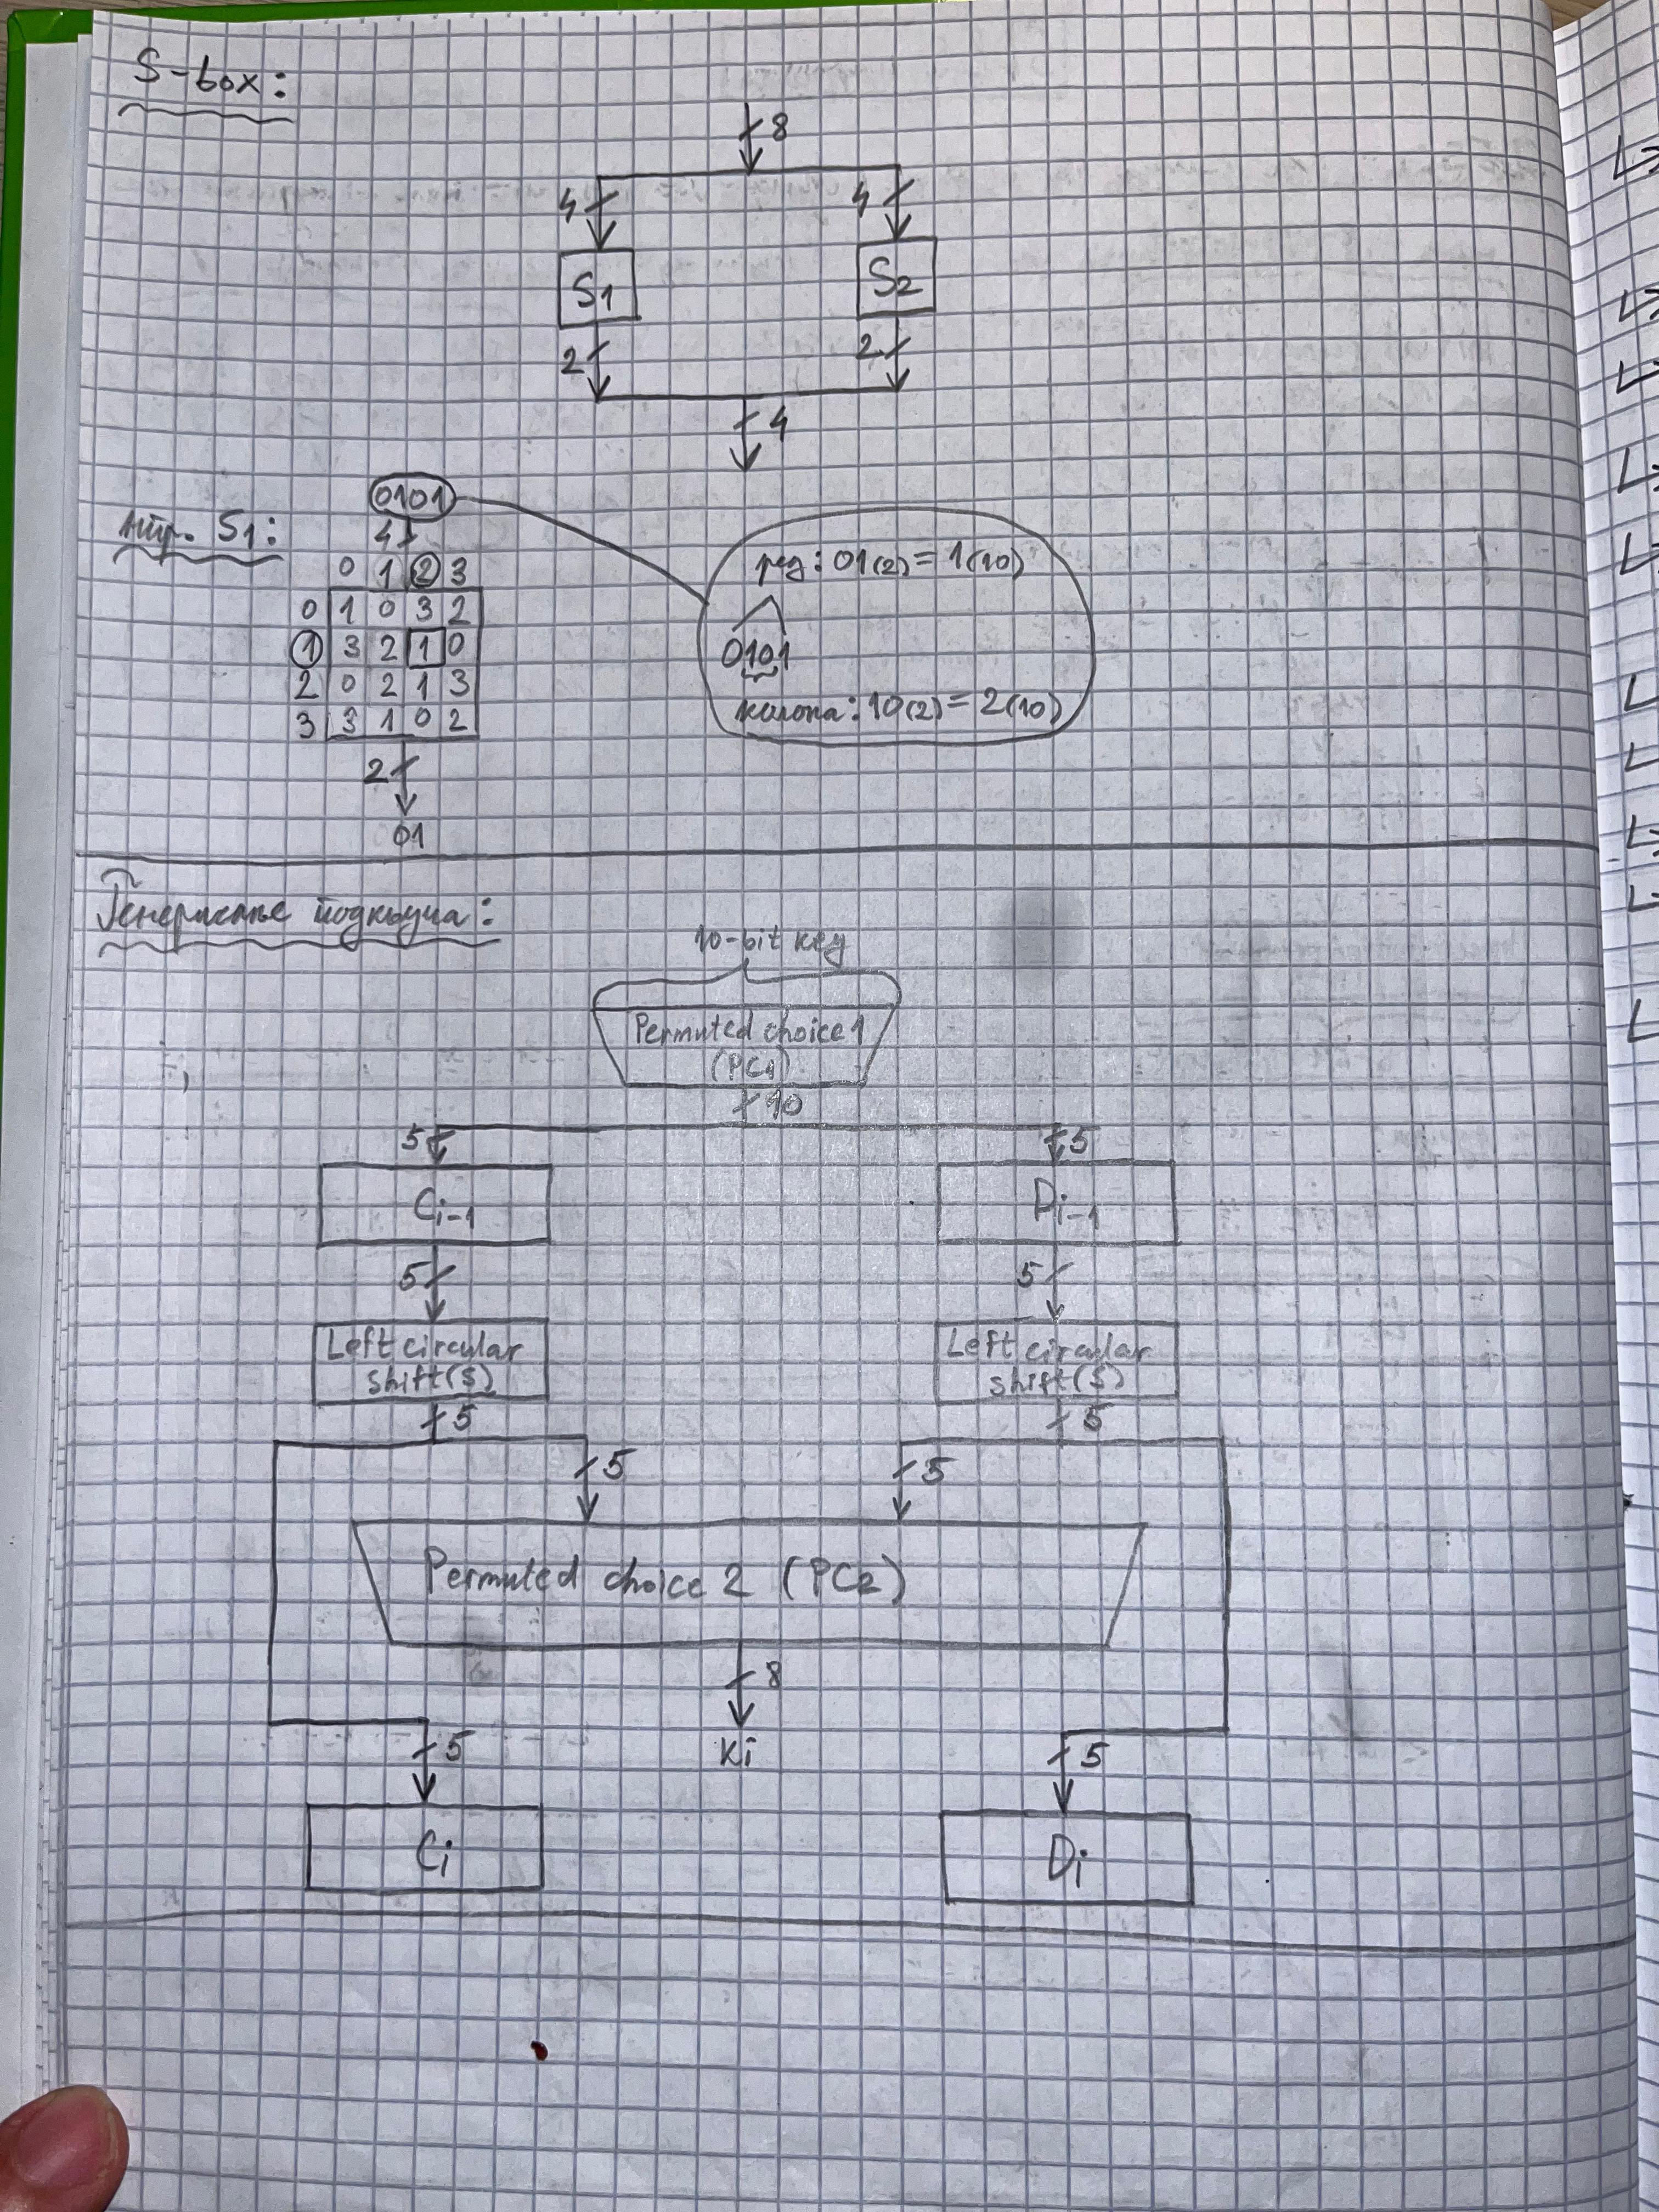 S-box:
8
4 4
S1 S2
2 2
4
0101
нпр. S1:
4
0 1 2 3
0 1 0 3 2
1 3 2 1 0
2 0 2 1 3
3 3 1 0 2
2
01
ред: 01(2) = 1(10)
0101
колона: 10(2) = 2(10)
Генерисање подкључа:
10-bit key
Permuted choice 1
(PC1)
10
5 5
Ci-1 Di-1
5 5
Left circular Left circular
shift(s) shift(s)
5 5
5 5
Permuted choice 2 (PC2)
8
Ki
5 5
Ci Di